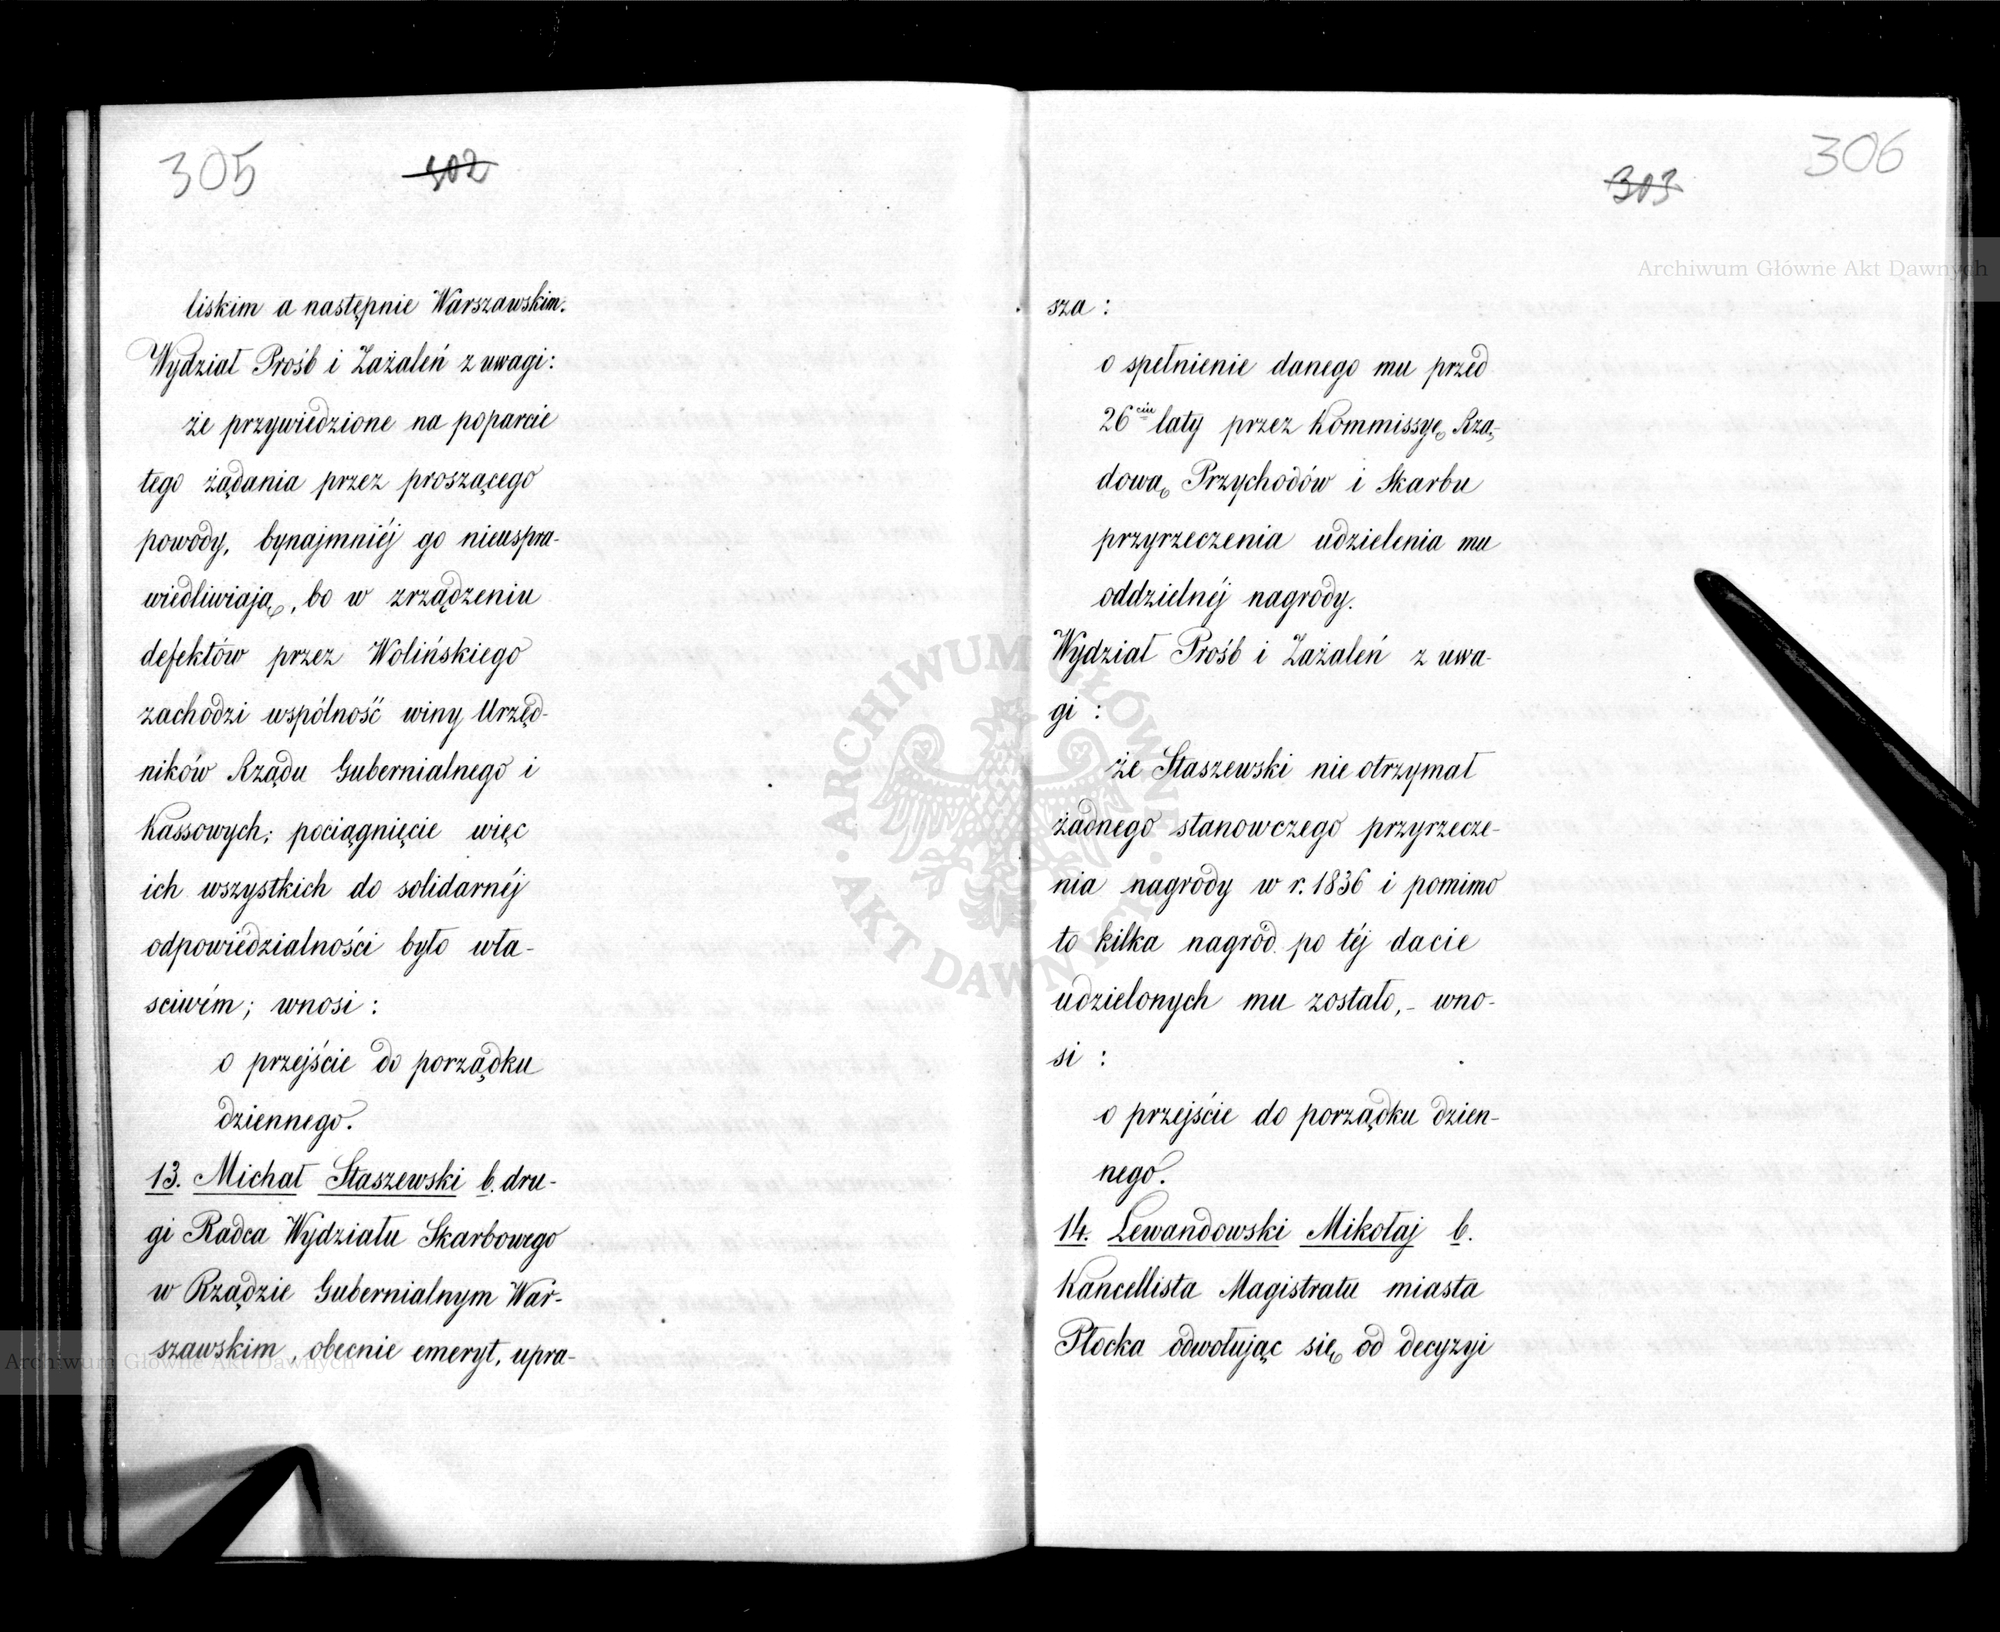 305 302
liskim a następnie Warszawskim.
Wydział Prośb i Zażaleń z uwagi:
że przywiedzione na poparcie
tego żądania przez proszącego
powody, bynajmniéj go nieuspra-
wiedliwiają, bo w zrządzeniu
defektów przez Wolińskiego
zachodzi wspólność winy Urzęd-
ników Rządu Gubernialnego i
Kassowych; pociągnięcie więc
ich wszystkich do solidarnéj
odpowiedzialności było wła-
sciwém; wnosi:
o przejście do porządku
dziennego.
13. Michał Staszewski b. dru-
gi Radca Wydziału Skarbowego
w Rządzie Gubernialnym War-
szawskim, obecnie emeryt, upra-
306
303
sza:
o spełnienie danego mu przed
26ciu laty przez Kommissyę Rzą-
dową Przychodów i Skarbu
przyrzeczenia udzielenia mu
oddzielnéj nagrody.
Wydział Prośb i Zażaleń z uwa-
gi:
że Staszewski nie otrzymał
żadnego stanowczego przyrzecze-
nia nagrody w r. 1836 i pomimo
to kilka nagród po téj dacie
udzielonych mu zostało, - wno-
si:
o przejście do porządku dzien-
nego.
14. Lewandowski Mikołaj b.
Kancellista Magistratu miasta
Płocka odwołując się od decyzyi
Archiwum Główne Akt Dawnych
Archiwum Główne Akt Dawnych
ARCHIWUM GŁÓWNE AKT DAWNYCH